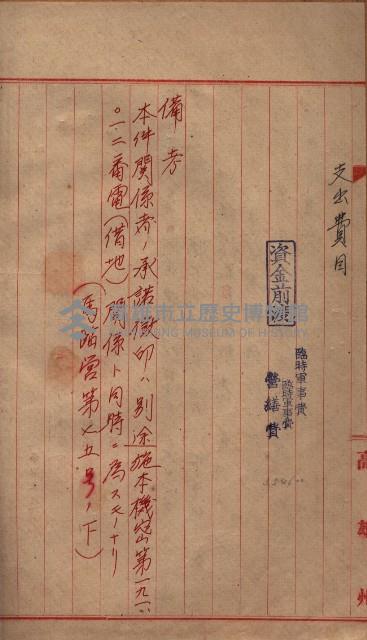 支出費目
資金前渡
臨時軍事費
臨時軍事費
営繕費
備考
本件関係者ノ承諾徴印ハ別途施本機密第一九一
〇一二番電(借地)関係ト同時ニ為スモノナリ
(馬経営第七五号ノ下)
高雄州
高雄市立歷史博物館
KAOHSIUNG MUSEUM OF HISTORY